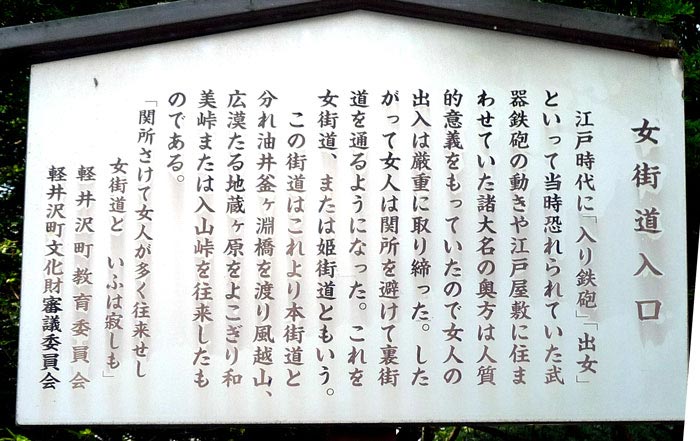 女街道入口
江戸時代に「入り鉄砲」「出女」
といって当時恐れられていた武
器鉄砲の動きや江戸屋敷に住ま
わせていた諸大名の奥方は人質
的意義をもっていたので女人の
出入は厳重に取り締った。した
がって女人は関所を避けて裏街
道を通るようになった。これを
女街道、または姫街道ともいう。
この街道はこれより本街道と
分れ油井釜ヶ淵橋を渡り風越山、
広漠たる地蔵ヶ原をよこぎり和
美峠または入山峠を往来したも
のである。
「関所さけて女人が多く往来せし
女街道と いふは寂しも」
軽井沢町教育委員会
軽井沢町文化財審議委員会